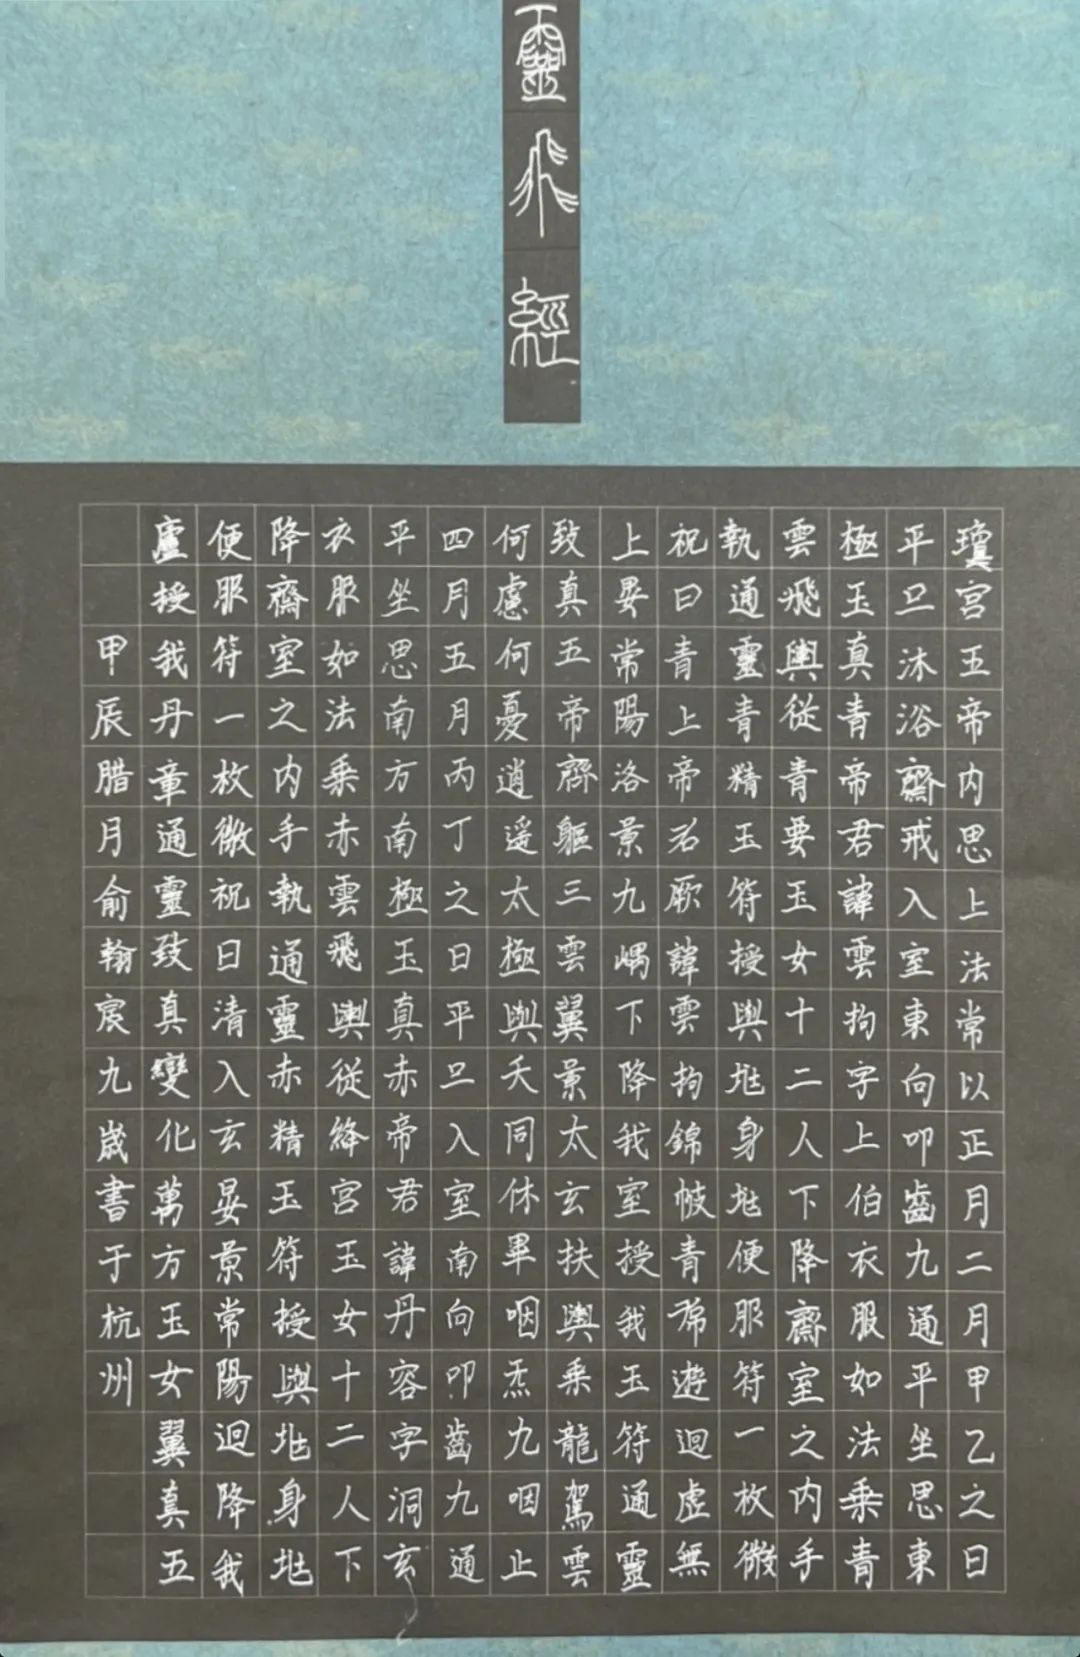 靈飛經
瓊宮五帝内思上法常以正月二月甲乙之日
平旦沐浴齋戒入室東向叩齒九通平坐思東
極玉真青帝君諱雲拘字上伯衣服如法乗青
雲飛輿從青要玉女十二人下降齋室之内手
執通靈青精玉符授與兆身兆便服符一枚微
祝曰青上帝君厥諱雲拘錦帔青帬遊迴虚無
上晏常陽洛景九嵎下降我室授我玉符通靈
致真五帝齊軀三雲翼景太玄扶輿乗龍駕雲
何慮何憂逍遥太極與天同休畢咽炁九咽止
四月五月丙丁之日平旦入室南向叩齒九通
平坐思南方南極玉真赤帝君諱丹容字洞玄
衣服如法乗赤雲飛輿從絳宮玉女十二人下
降齋室之内手執通靈赤精玉符授與兆身兆
便服符一枚微祝曰清入玄晏景常陽迴降我
廬授我丹章通靈致真變化萬方玉女翼真五
甲辰腊月俞翰宸九歲書于杭州